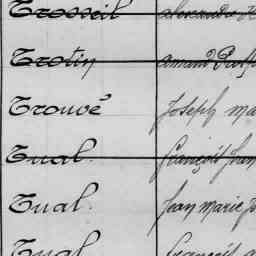 Trosseil Alexandre
Trotin Amand
Trouvé Joseph Ma
Tual François Jean
Tual Jean Marie
Tual François